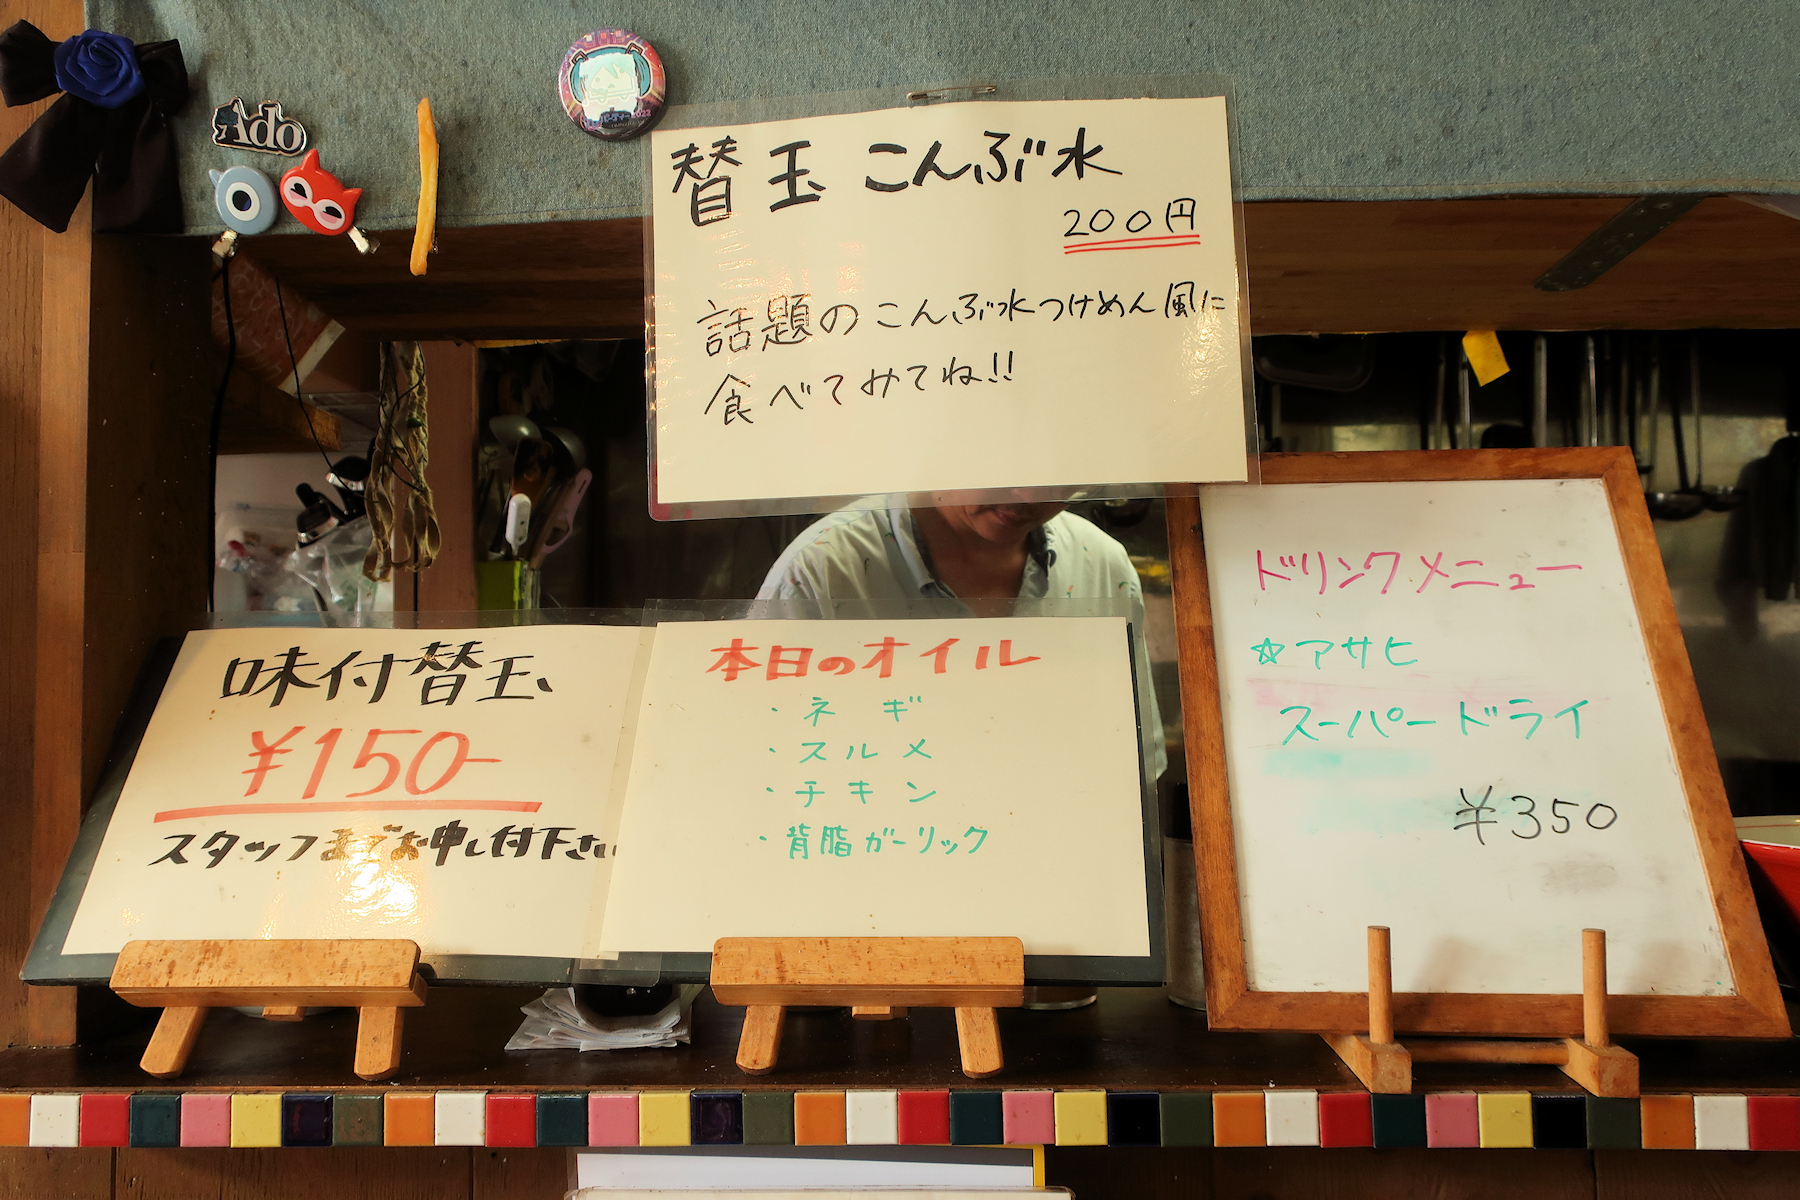 Ado
替玉 こんぶ水
200円
話題のこんぶ水つけめん風に
食べてみてね!!
味付替玉
¥150-
スタッフまでお申し付下さい
本日のオイル
・ネギ
・スルメ
・チキン
・背脂ガーリック
ドリンクメニュー
☆アサヒ
スーパードライ
¥350